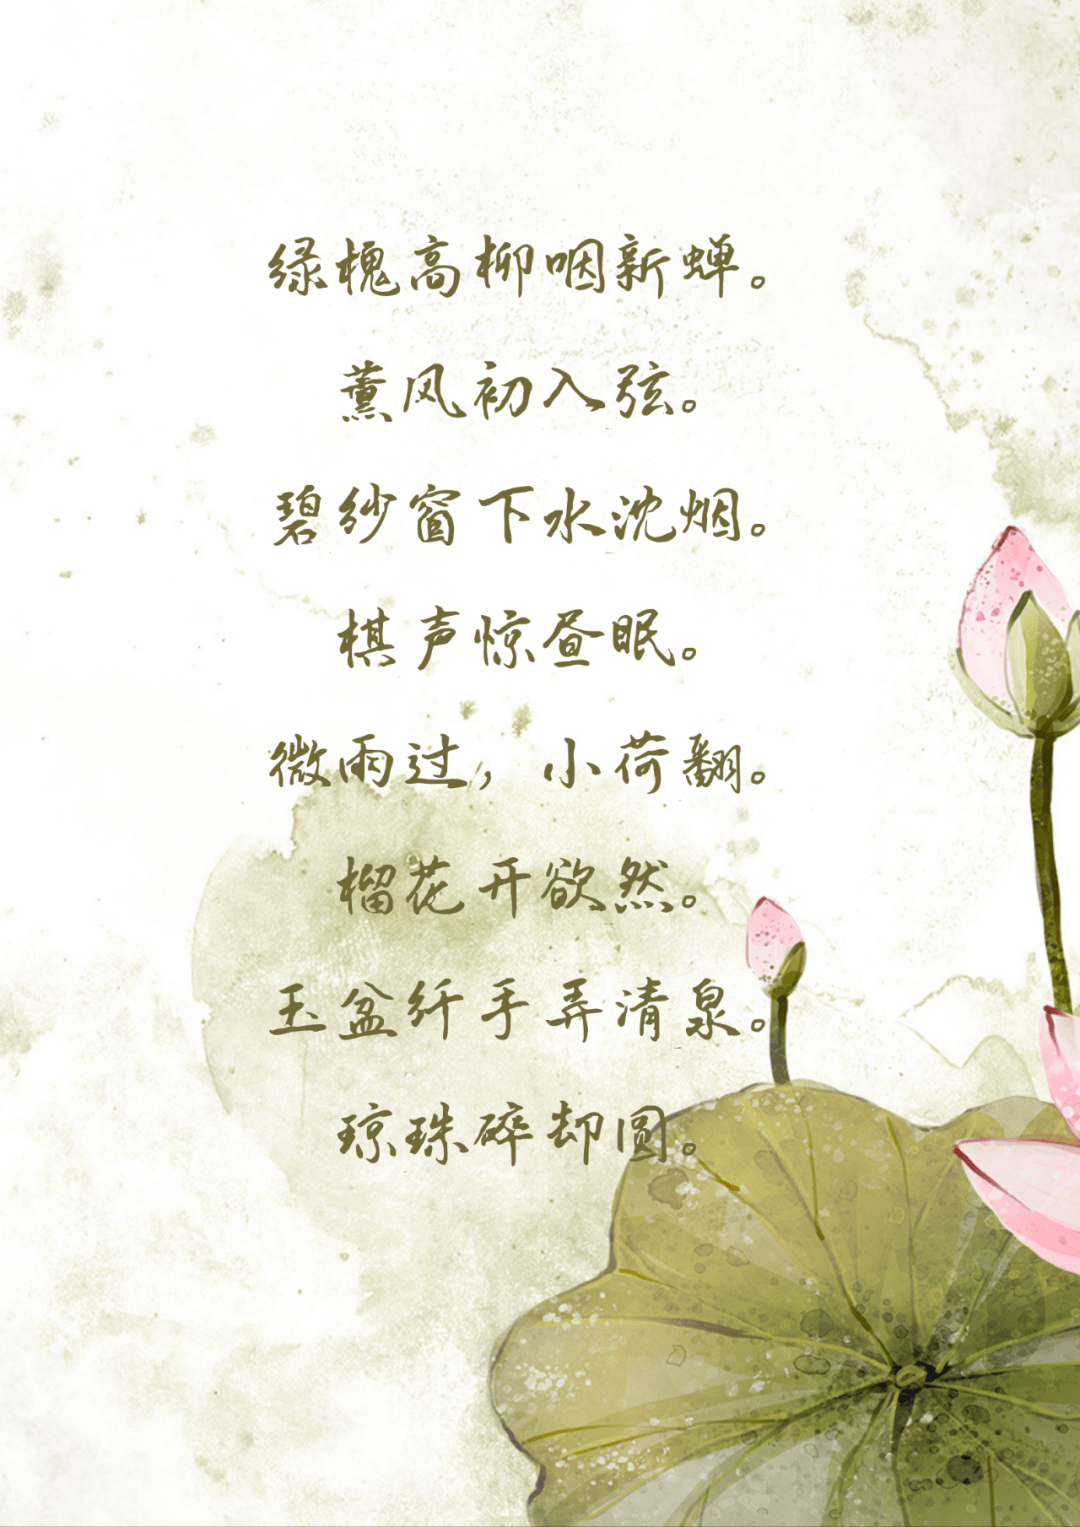 绿槐高柳咽新蝉。
薰风初入弦。
碧纱窗下水沈烟。
棋声惊昼眠。
微雨过，小荷翻。
榴花开欲然。
玉盆纤手弄清泉。
琼珠碎却圆。